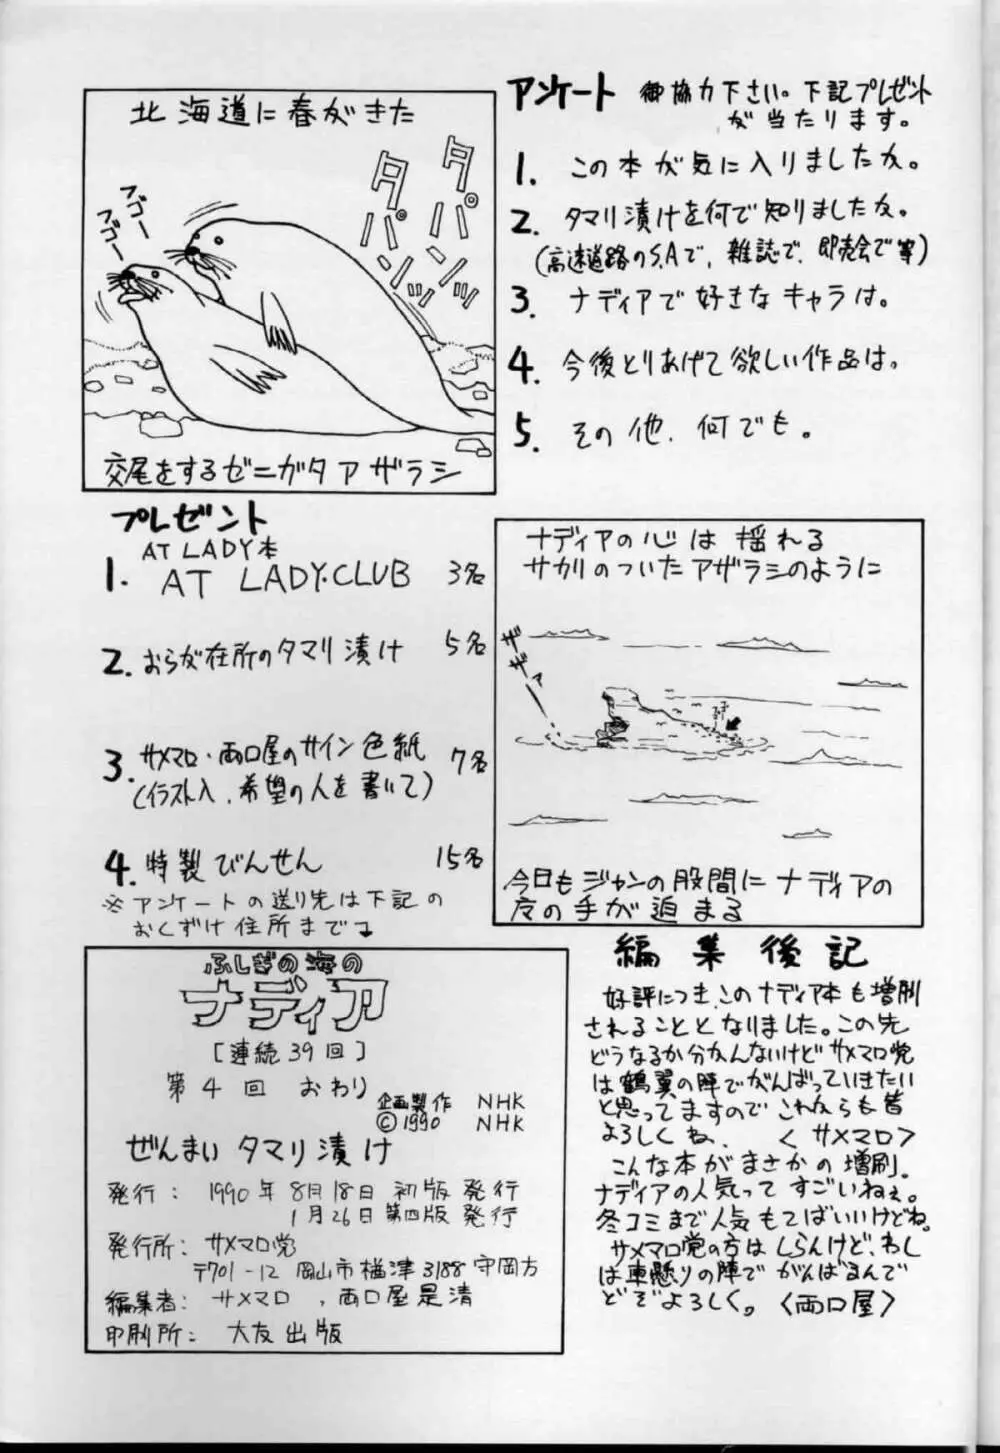 北海道に春がきた
フゴー
フゴー
タパンッ
タパンッ
交尾をするゼニガタアザラシ
アンケート 御協力下さい。下記プレゼント
が当たります。
1. この本が気に入りましたか。
2. タマリ漬けを何で知りましたか。
(高速道路のS.Aで、雑誌で、即売会で等)
3. ナディアで好きなキャラは。
4. 今後とりあげて欲しい作品は。
5. その他、何でも。
プレゼント
AT LADY本
1. AT LADY・CLUB 3名
2. おらが在所のタマリ漬け 5名
3. サメマロ・両口屋のサイン色紙 7名
(イラスト入、希望の人を書いて)
4. 特製びんせん 15名
※アンケートの送り先は下記の
おくずけ住所まで
ナディアの心は揺れる
サカリのついたアザラシのように
ザザァ
今日もジャンの股間にナディアの
夜の手が迫まる
ふしぎの海の
ナディア
[連続39回]
第4回 おわり
企画製作 NHK
©1990 NHK
ぜんまいタマリ漬け
発行: 1990年8月18日 初版発行
1月26日 第四版発行
発行所: サメマロ党
〒701-12 岡山市楢津3188 守岡方
編集者: サメマロ、両口屋是清
印刷所: 大友出版
編集後記
好評につき、このナディア本も増刷
されることとなりました。この先
どうなるか分かんないけどサメマロ党
は鶴翼の陣でがんばっていきたい
と思ってますのでこれからも皆
よろしくね、 <サメマロ>
こんな本がまさかの増刷。
ナディアの人気ってすごいねぇ。
冬コミまで人気もてばいいけどね。
サメマロ党の方はしらんけど、わし
は車懸りの陣でがんばるんで
どぞよろしく。<両口屋>